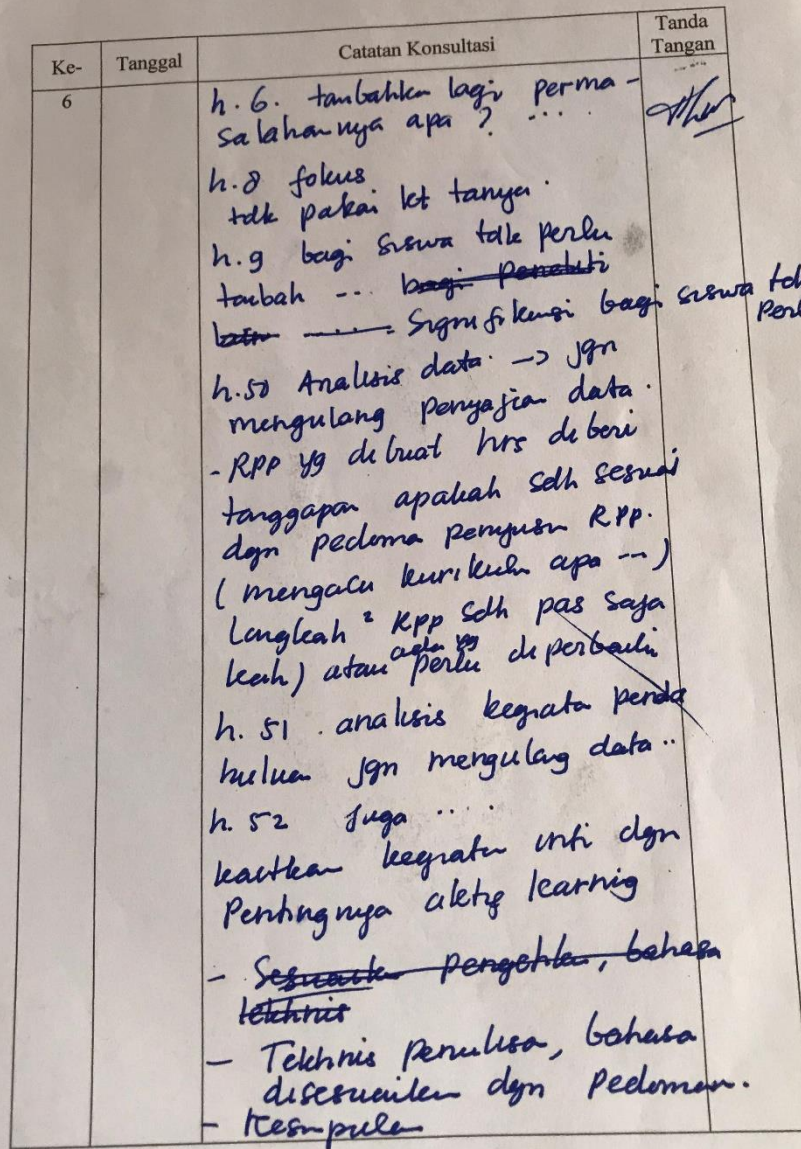 Ke- Tanggal Catatan Konsultasi Tanda Tangan
6
h. 6. tambahkan lagi perma-
salahannya apa ? ....
h. 8 fokus
tdk pakai kt tanya.
h. 9 bagi siswa tdk perlu
tambah ... bagi peneliti
lain ...... Signifikansi bagi siswa tdk
Perl
h. 50 Analisis data. -> jgn
mengulang penyajian data.
- RPP yg di buat hrs di beri
tanggapan apakah sdh sesuai
dgn pedoma penyusn RPP.
( mengacu kurikulm apa ... )
langkah ² RPP sdh pas saja
kah ) atau ada yg perlu di perbaiki
h. 51 . analisis kegiata penda
huluan jgn mengulang data ..
h. 52 juga ....
kaitkan kegiatan inti dgn
Pentingnya aktif learnig
- Sesuaikn pengetikan, bahasa
tekhnis
- Tekhnis penulisa, bahasa
disesuaikan dgn Pedoman.
- Kesimpulan